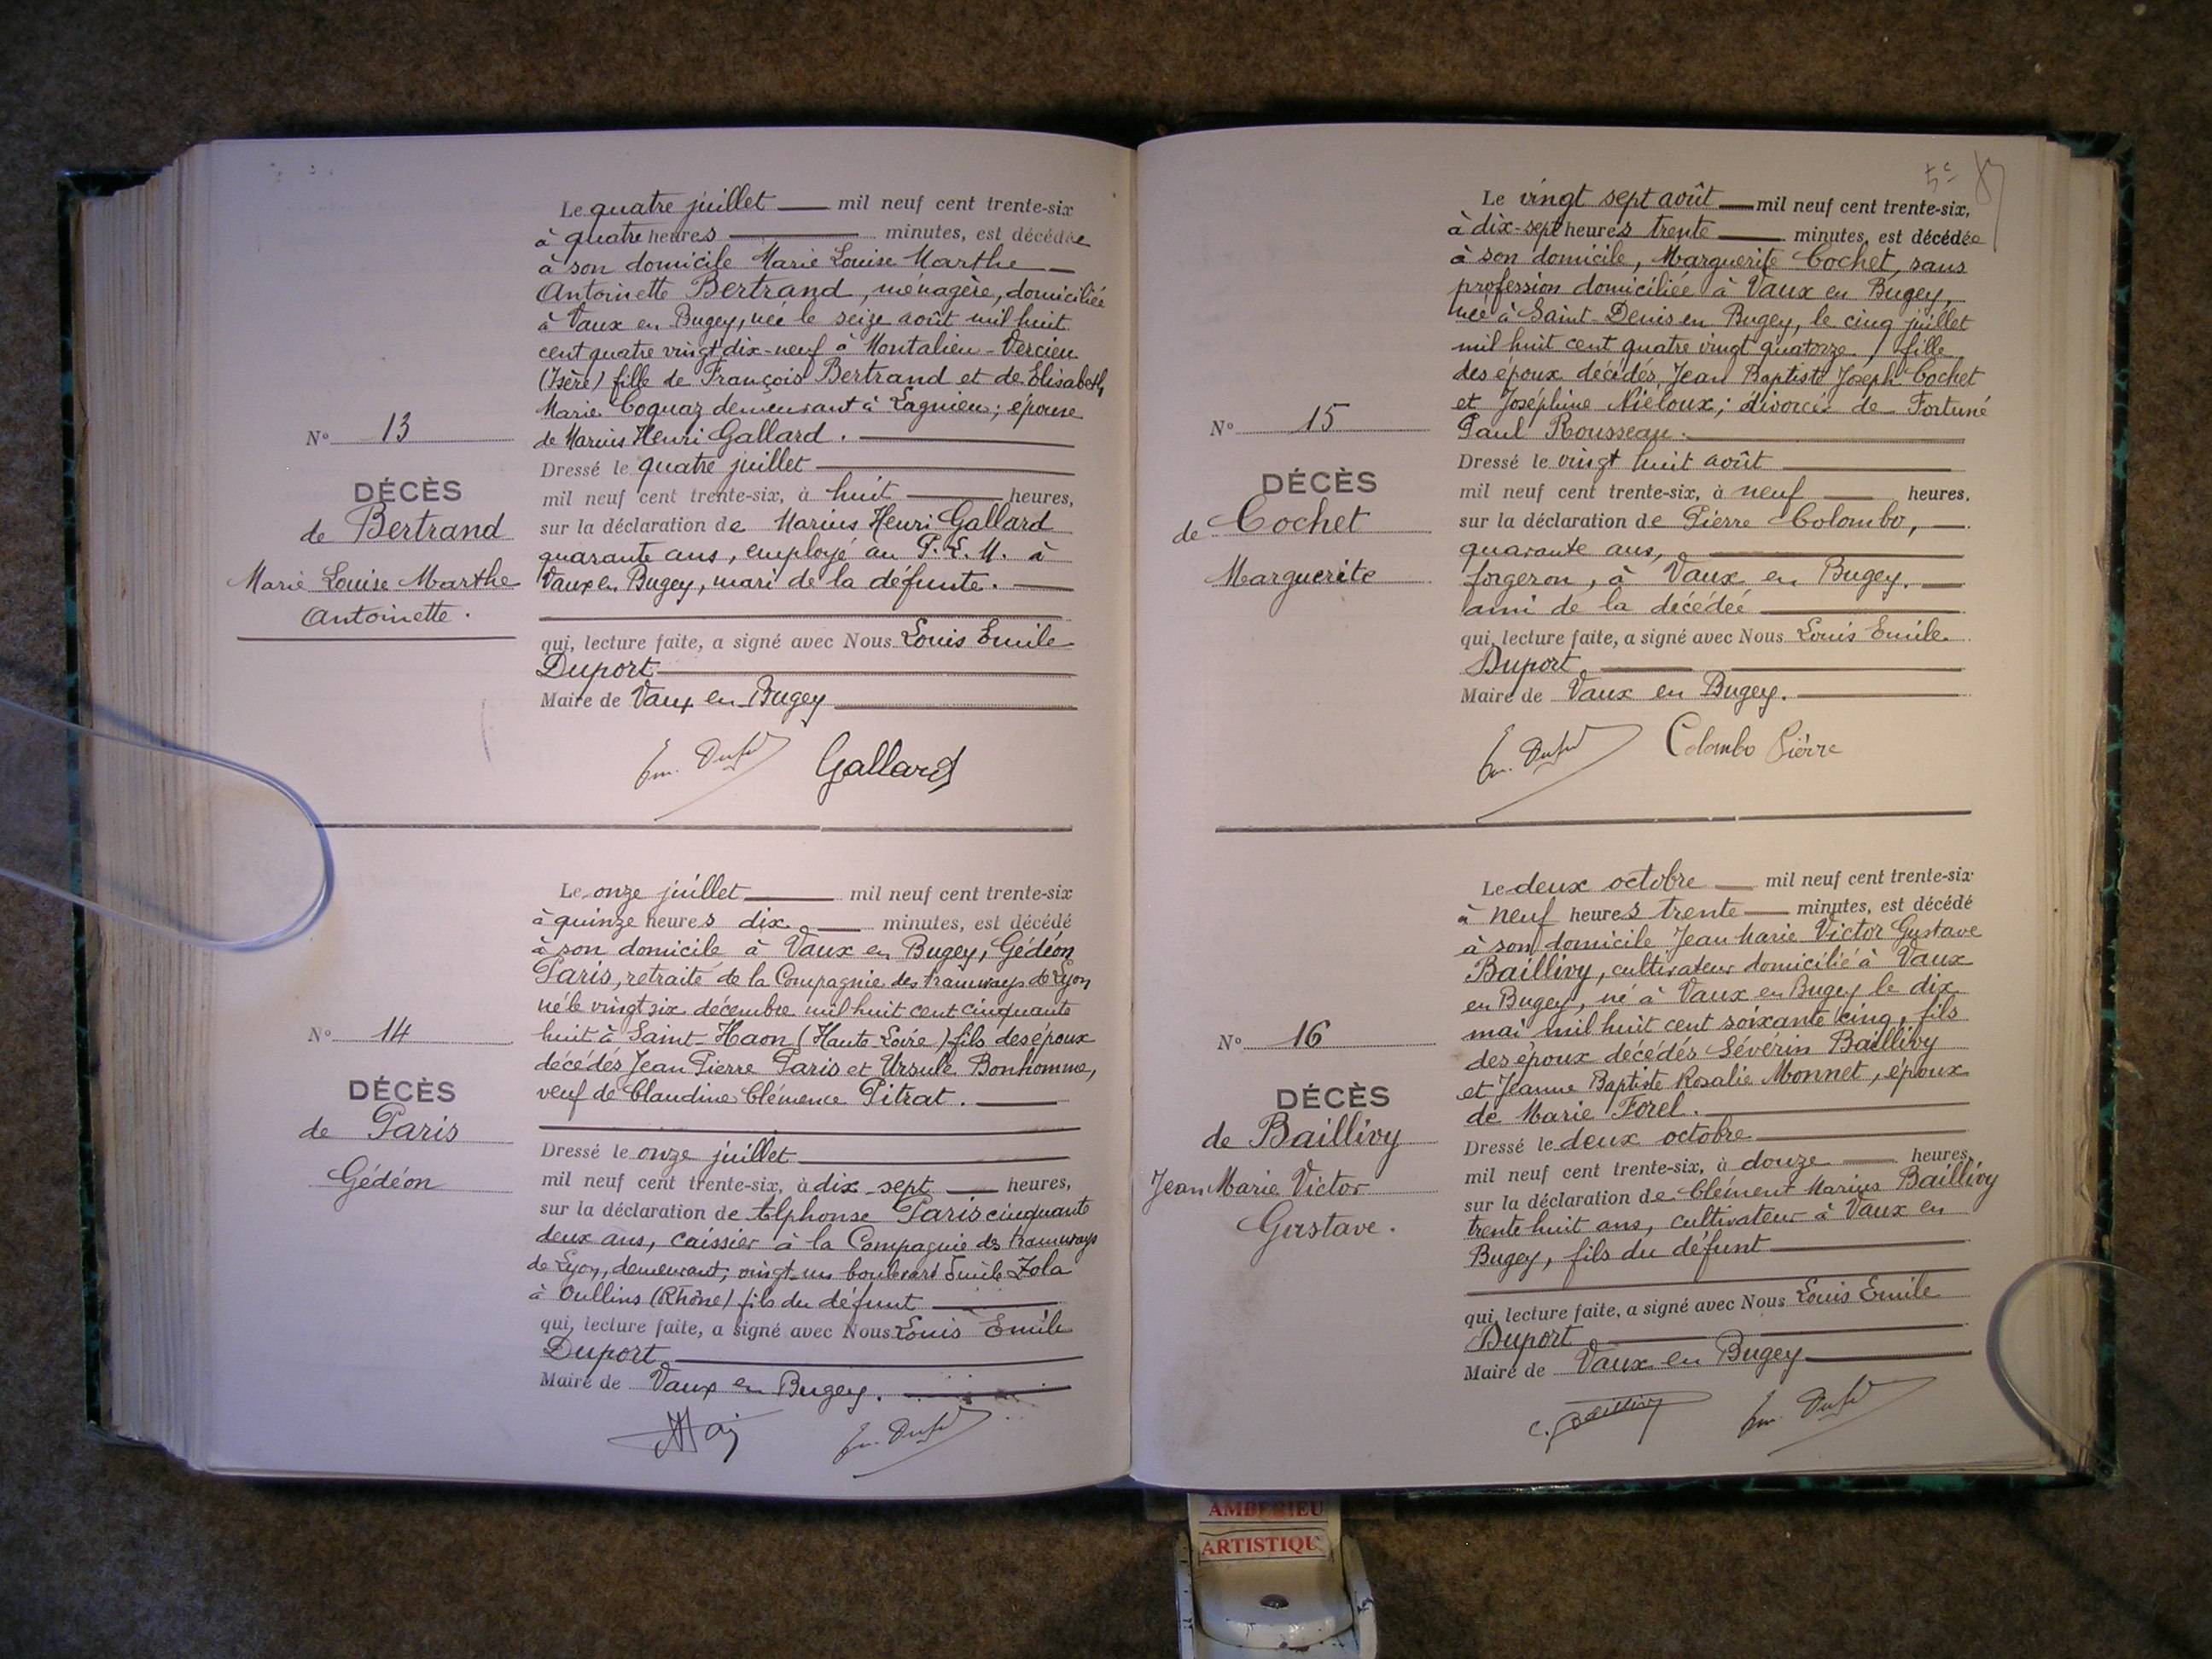 Le quatre juillet mil neuf cent trente-six
à quatre heures minutes, est décédée
à son domicile Marie Louise Marthe
Antoinette Bertrand, ménagère, domiciliée
à Vaux en Bugey, née le seize août mil huit
cent quatre vingt dix-neuf à Montalieu-Vercieu
(Isère) fille de François Bertrand et de Elisabeth
Marie Coquaz demeurant à Lagnieu; épouse
de Marius Henri Gallard.
Dressé le quatre juillet
mil neuf cent trente-six, à huit heures,
sur la déclaration de Marius Henri Gallard
quarante ans, employé au P.L.M. à
Vaux en Bugey, mari de la défunte.
qui, lecture faite, a signé avec Nous Louis Emile
Duport
Maire de Vaux en Bugey
Nº 13
DÉCÈS
de Bertrand
Marie Louise Marthe
Antoinette.
Em. Duport Gallard
Le onze juillet mil neuf cent trente-six
à quinze heures dix minutes, est décédé
à son domicile à Vaux en Bugey, Gédéon
Paris, retraité de la Compagnie des tramways de Lyon
né le vingt six décembre mil huit cent cinquante
huit à Saint-Haon (Haute-Loire) fils des époux
décédés Jean Pierre Paris et Ursule Bonhomme,
veuf de Claudine Clémence Pitrat.
Dressé le onze juillet
mil neuf cent trente-six, à dix sept heures,
sur la déclaration de Alphonse Paris cinquante
deux ans, caissier à la Compagnie des tramways
de Lyon, demeurant, vingt-un boulevard Emile Zola
à Oullins (Rhône) fils du défunt
qui, lecture faite, a signé avec Nous Louis Emile
Duport
Maire de Vaux en Bugey.
Nº 14
DÉCÈS
de Paris
Gédéon
Em. Duport
5e
Le vingt sept août mil neuf cent trente-six,
à dix-sept heures trente minutes, est décédée
à son domicile, Marguerite Cochet, sans
profession domiciliée à Vaux en Bugey,
née à Saint-Denis en Bugey, le cinq juillet
mil huit cent quatre vingt quatorze / fille
des époux décédés Jean Baptiste Joseph Cochet
et Joséphine Niéloux; divorcée de Fortuné
Paul Rousseau.
Dressé le vingt huit août
mil neuf cent trente-six, à neuf heures.
sur la déclaration de Pierre Colombo,
quarante ans,
forgeron, à Vaux en Bugey.
ami de la décédée
qui, lecture faite, a signé avec Nous Louis Emile
Duport
Maire de Vaux en Bugey.
Nº 15
DÉCÈS
de Cochet
Marguerite
Em. Duport Colombo Pierre
Le deux octobre mil neuf cent trente-six
à neuf heures trente minutes, est décédé
à son domicile Jean Marie Victor Gustave
Baillivy, cultivateur domicilié à Vaux
en Bugey, né à Vaux en Bugey le dix
mai mil huit cent soixante cinq, fils
des époux décédés Séverin Baillivy
et Jeanne Baptiste Rosalie Monnet, époux
de Marie Forel.
Dressé le deux octobre
mil neuf cent trente-six, à douze heures,
sur la déclaration de Clément Marius Baillivy
trente huit ans, cultivateur à Vaux en
Bugey, fils du défunt
qui, lecture faite, a signé avec Nous Louis Emile
Duport
Maire de Vaux en Bugey
Nº 16
DÉCÈS
de Baillivy
Jean Marie Victor
Gustave.
C. Baillivy Em. Duport
AMBERIEU
ARTISTIQU